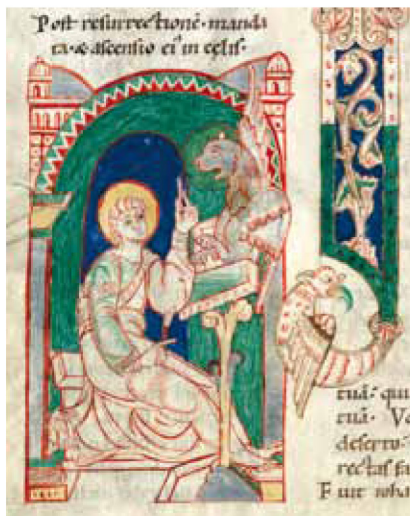 Post resurrectionē· manda
ta· & ascensio ei' in celis·
tuā· qui
tuā· Vo
deserto·
rectas fa
F uit ioha